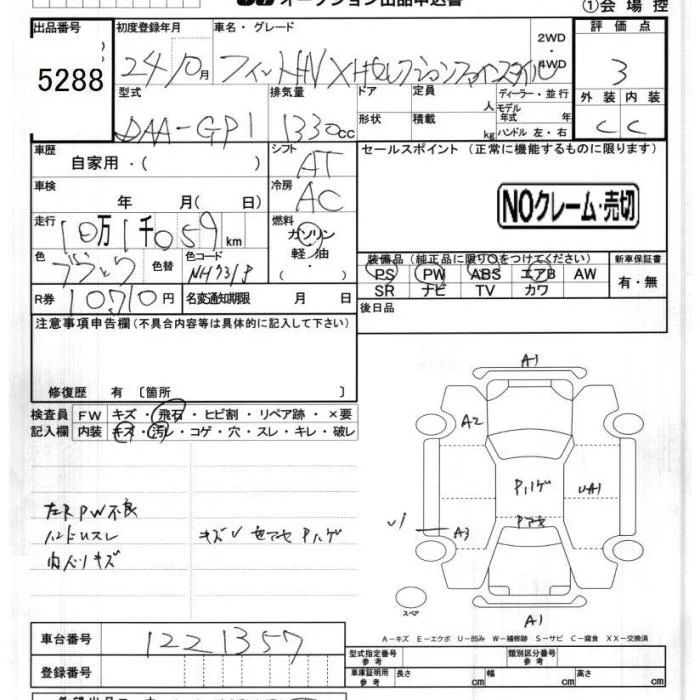 オークション出品申込書
①会場控
出品番号 初度登録年月 車名・グレード 2WD 評価点
5288 24/10月 フィットHV XHセレクションファインスタイル ・4WD 3
型式 排気量 ドア 定員 人 ディーラー・並行 外装 内装
DAA-GP1 1330cc 形状 積載 kg モデル年式 年 ハンドル 左・右 C C
車歴 シフト セールスポイント（正常に機能するものに限ります）
自家用・（ ） AT
車検 冷房
年 月（ 日） AC NOクレーム・売切
走行 燃料
10万1千059km ガソリン
色 色替 色コード 軽油 装備品（純正品に限り○をつけてください） 新車保証書
ブラック NH731P （ ・ ） PS PW ABS エアB AW 有・無
SR ナビ TV カワ
R券 10,710円 名変通知期限 月 日 後日品
注意事項申告欄（不具合内容等は具体的に記入して下さい）
修復歴 有〔箇所 〕
検査員 FW キズ・飛石・ヒビ割・リペア跡・×要
記入欄 内装 キズ・汚レ・コゲ・穴・スレ・キレ・破レ
左R PW不良
ハンドルスレ キズU 色アセ Pハゲ
内ハリキズ
A1
A2
Pハゲ UA1
Pアセ
U1 A3
スペア
A1
A−キズ E−エクボ U−凹み W−補修跡 S−サビ C−腐食 XX−交換済
車台番号 1221357 型式指定番号 参考 類別区分番号 参考
登録番号 車庫証明用 参考 長さ cm 幅 cm 高さ cm